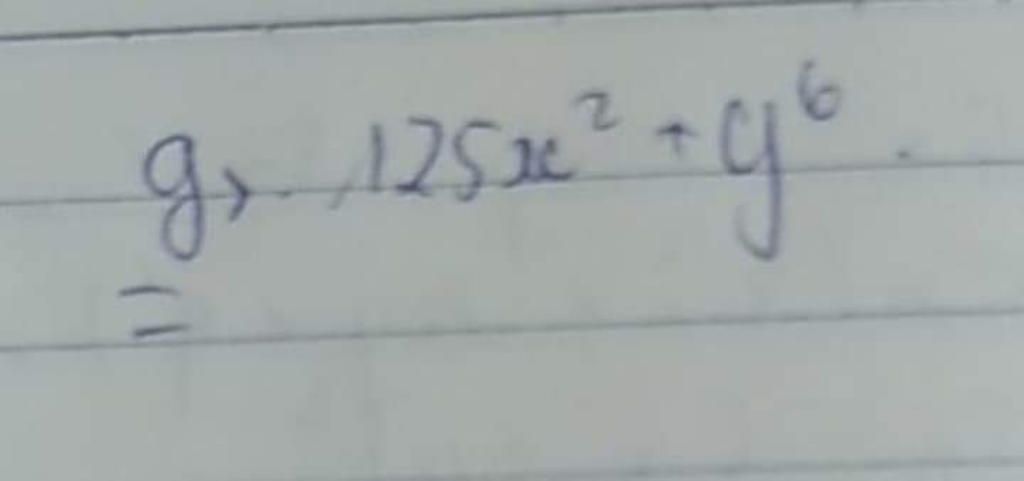 g, 125x² + y⁶.
=